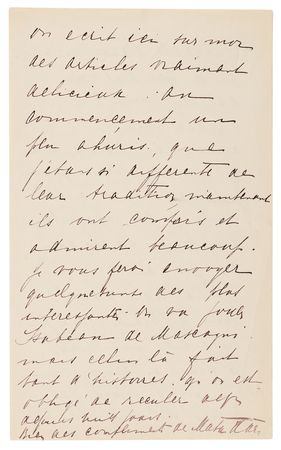 on ecrit ici sur moi
des articles vraiment
delicieux. au
commencement un
peu ahuris, que
j'etais si differente de
leur tradition, maintenant
ils ont compris et
admirent beaucoup.
Je vous ferai envoyer
quelques uns des plus
interessants. On va jouer
Isabeau de Mascagni.
mais celui là fait
tant d'histoires, qu'on est
obligé de reculer
depuis huit jours.
Bien des compliments de